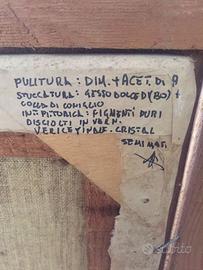 PULITURA: DIM. + ACET. DI A
STUCCATURA: GESSO DOLCE DI (BO) +
COLLA DI CONIGLIO
INT. PITTORICA: PIGMENTI PURI
DISCIOLTI IN VERN.
VERNICE FINALE. CRISTAL
SEMI MAT.
subito